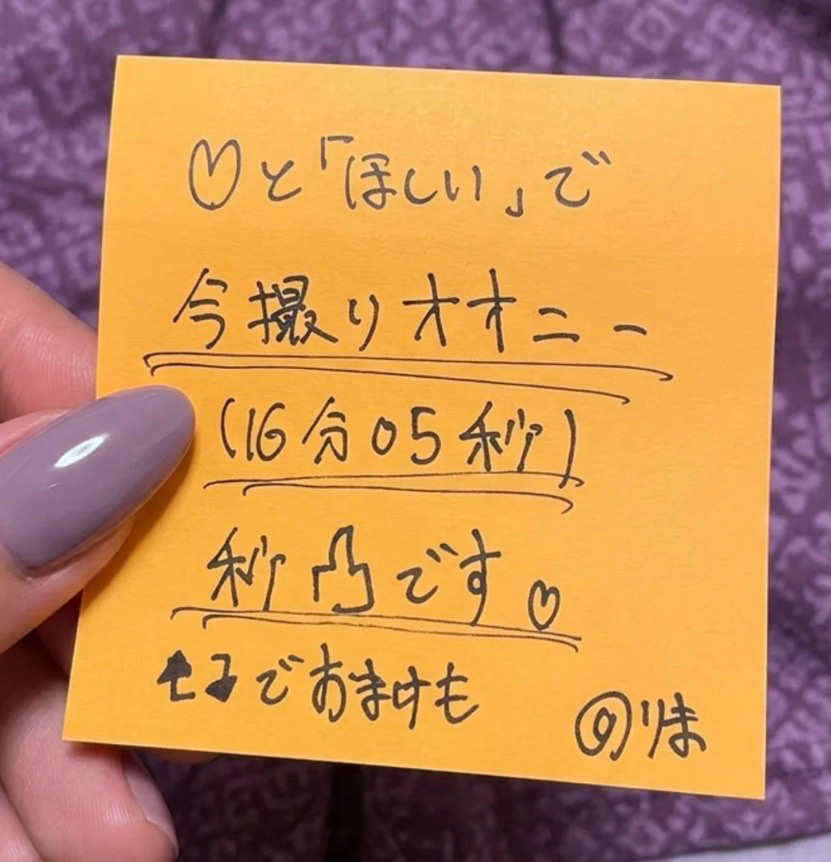 ♡と「ほしい」で
今撮りオオニー
(16分05秒)
秒凸です♡
でおまけも
@りま